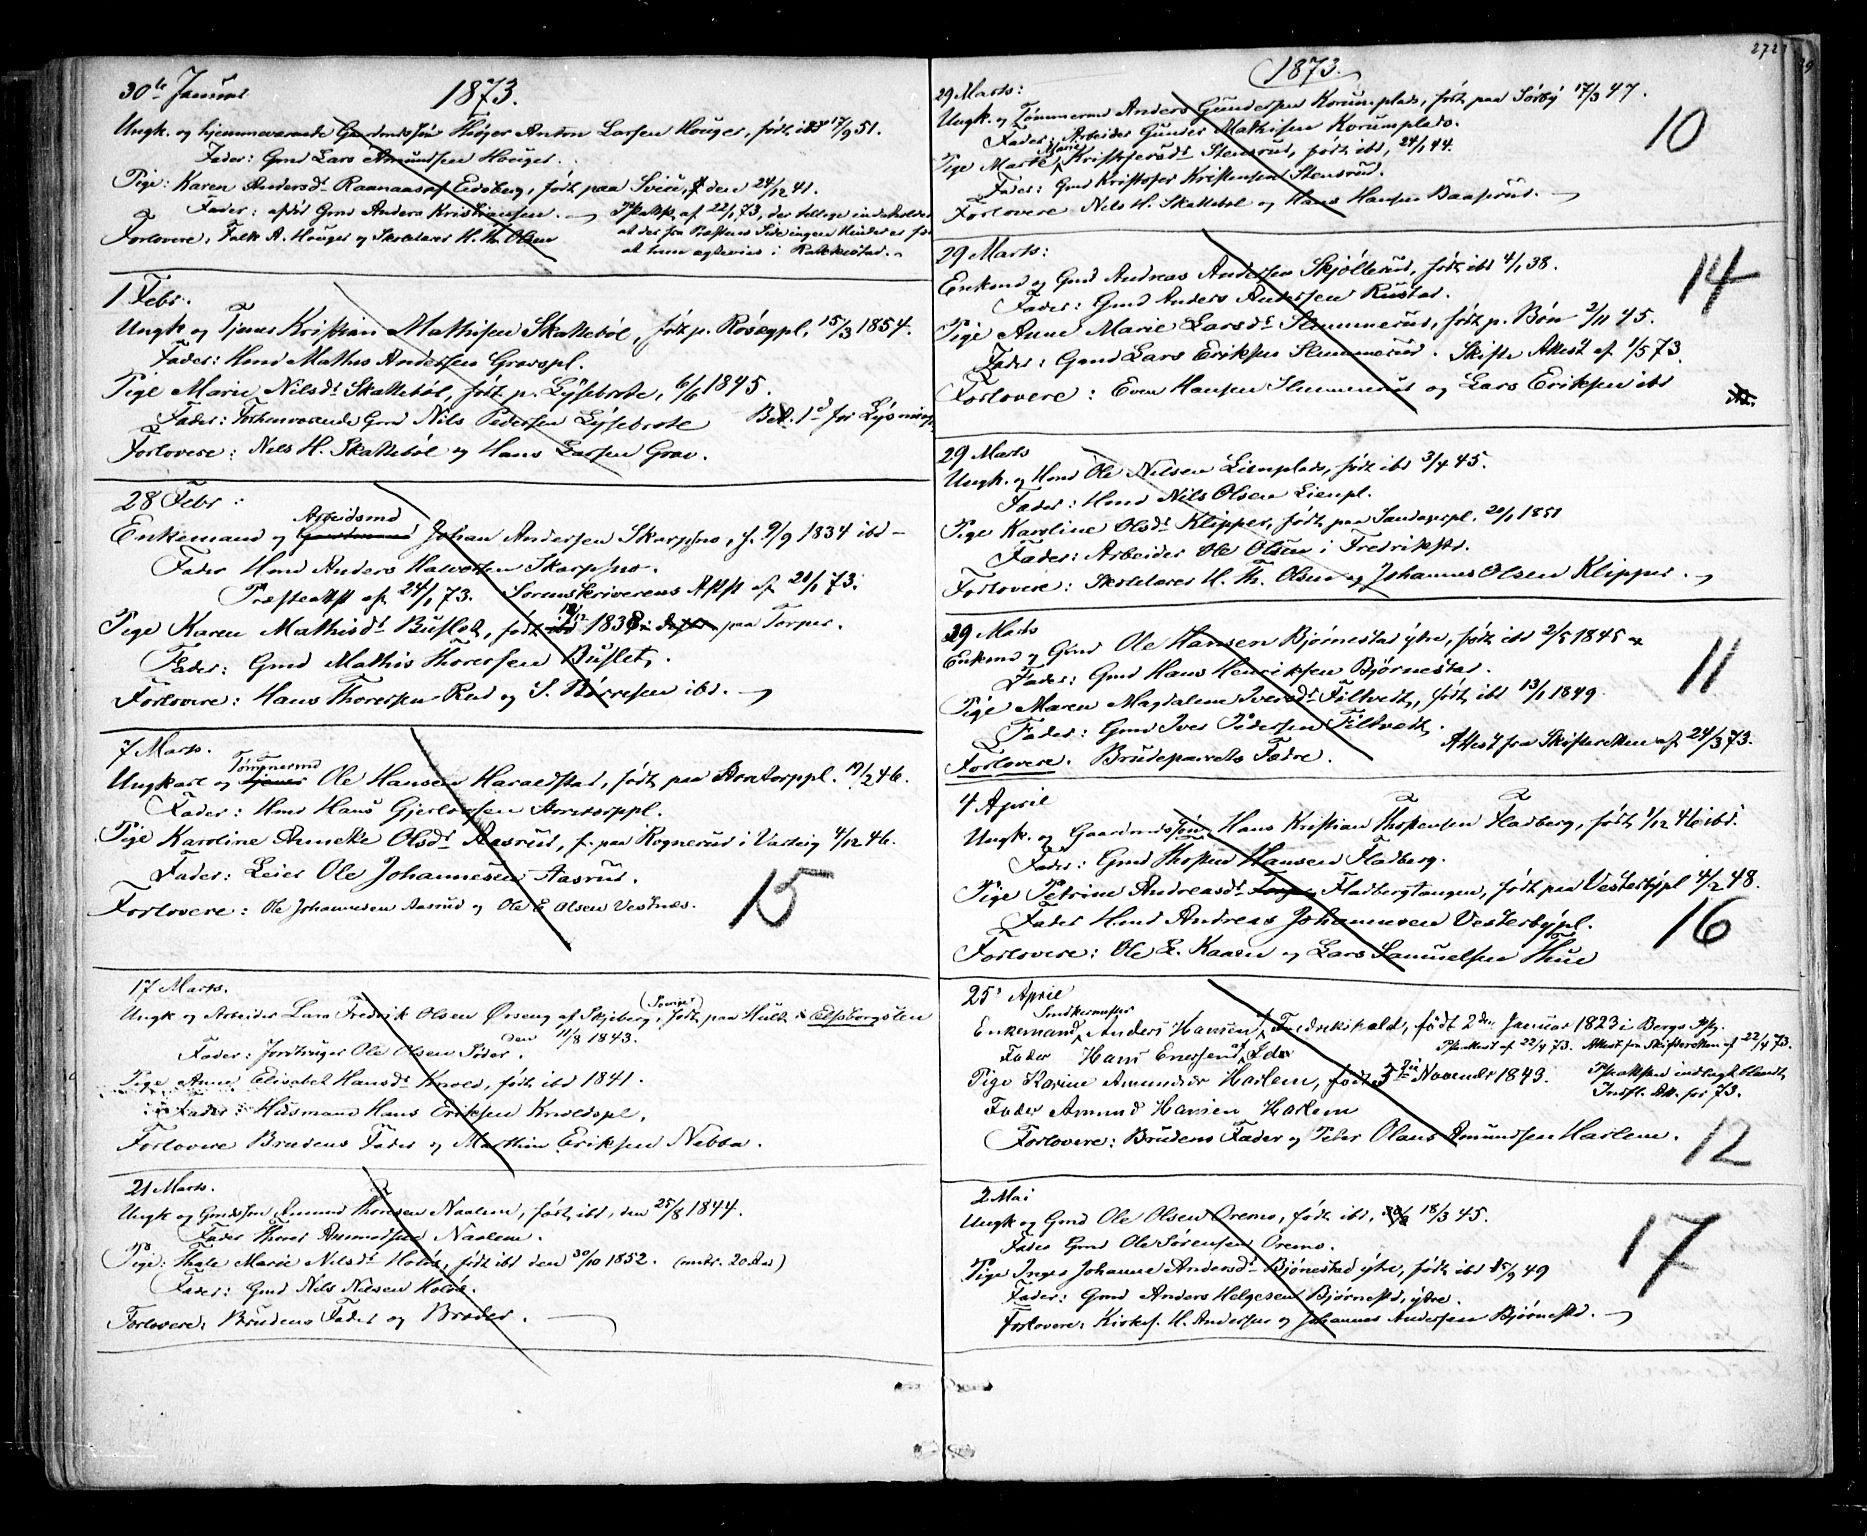 30te Januar 1873.
Ungk. og hjemmeværende Gaardmdssøn Høyer Anton Larsen Houger, født ibd 17/9 51.
Fader: Gmd Lars Amundsen Houger.
Pige: Karen Andersdt Raanaas af Eidsberg, født paa Svice, den 24/12 41.
Fader: afdøde Gmd Anders Kristiansen. Pstattst. af 22/1 73, der tillige indeholder
Forlovere, Falk A. Houger og Skolelærer H. Th. Olsen at der fra Præstens Side ingen Hinder er for
at ham ægtevies i Rakkestad.
1 Febr.
Ungk og Tjener Kristian Mathisen Skattebøl, født p. Røsægpl. 15/3 1854.
Fader: Hmd Mathis Andersen Gravspl.
Pige Marie Nilsdt Skattebøl, født p. Lysebrote, 6/6 1845.
Fader: Forhenværende Gmd Nils Pedersen Lysebrote Bet. 1d for Lysning
Forlovere: Nils H. Skattebøl og Hans Larsen Grav.
28 Febr:
Arbeidsmd
Enkemand og Gaardmand Johan Andersen Skarpsno, f. 9/9 1834 ibd -
Fader Hmd Anders Halvorsen Skarpsno.
Præsteattst af 24/1 73. Sorenskriverens Attst af 20/1 73.
Pige Karen Mathisdt Buslet, født 1838 paa Torper.
Fader: Gmd Mathis Thoresen Buslet.
Forlovere: Hans Thoresen Rud og S. Børresen ibd.
7 Marts.
Tømmermd
Ungkarl og Tjener Ole Hansen Haraldstad, født paa Arnetorppl. 17/2 46.
Fader: Hmd Hans Gjerlovsen Arnetorppl.
Pige Karoline Anneke Olsdt Aasrud, f. paa Rognerud i Varteig 4/12 46.
Fader: Leier Ole Johannesen Aasrud.
Forlovere: Ole Johannesen Aasrud og Ole E Olsen Vestnæs.
15
17 Marts.
Ungk og Arbeider Lars Fredrik Olsen Ørseng af Skjeberg, (Sverige) født paa Hult i Elfsborgslen
den 11/8 1843.
Fader: Jordbruger Ole Olsen Söder.
Pige Anne Elisabet Hansdt Knold, født ibd 1841.
Fader: Husmand Hans Eriksen Knoldspl.
Forlovere Brudens Fader og Marthin Eriksen Nebba.
21 Marts.
Ungk og Gmdssøn Amund Thoresen Naalum, født ibd, den 25/8 1844.
Fader Thore Amundsen Naalum.
Pige: Thale Marie Nilsdt Holøs, født ibd den 30/10 1852. (
Fader: Gmd Nils Nilsen Holøs.
Forlovere: Brudens Fader og Broder.
272
1873.
29 Marts:
Ungk. og Tømmermd Anders Gundersen Korumplads, født paa Sørby 17/3 47.
Fader: Arbeider Gunder Mathisen Korumplads.
Pige Marte Marie Kristofersdt Stensrud, født ibd, 24/1 44.
Fader: Gmd Kristofer Kristensen Stensrud.
Forlovere Nils H. Skattebøl og Hans Hansen Baasrud.
10
29 Marts:
Enkemd og Gmd Andreas Andersen Skjøllerud, født ibd 4/1 38.
Fader: Gmd Anders Andersen Rustad.
Pige Anne Marie Larsdt Slemmerud, født p. Bøn 2/11 45.
Fader: Gmd Lars Eriksen Slemmerud. Skifte Attest af 1/5 73.
Forlovere: Even Hansen Slemmerud og Lars Eriksen ibd
14
29 Marts
Ungk. og Hmd Ole Nilsen Lienplads, født ibd 3/4 45.
Fader: Hmd Nils Olsen Lienpl.
Pige Karoline Olsdt Klipper, født paa Sandaspl. 20/1 1851
Fader: Arbeider Ole Olsen i Fredrikstd.
Forlovere: Skolelærer H. Th. Olsen og Johannes Olsen Klipper.
29 Marts
Enkemd og Gmd Ole Hansen Bjørnestad ytre, født ibd 2/5 1845
Fader: Gmd Hans Henriksen Bjørnestad.
Pige Maren Magdalene Iversdt Filtvedt, født ibd 13/1 1849.
Fader: Gmd Iver Pedersen Filtvedt. Attest fra Skifteretten af 24/3 73.
Forlovere. Brudeparrets Fædre.
11
4 April
Ungk. og Gaardmdssøn Hans Kristian Thostensen Fladberg, født 1/12 46 ibd.
Fader: Gmd Thosten Hansen Fladberg.
Pige Petrine Andreasdt Fladbergtangen, født paa Vesterbypl 4/2 48.
Fader Hmd Andreas Johannesen Vesterbypl.
Forlovere: Ole E. Kaasen og Lars Samuelsen Thue
16
25 April
Snedkermester
Enkemand Anders Hansen af Fredrikshald, født 2den Januar 1823 i Bergs Psg.
Pstattest af 22/4 73. Attest fra Skifteretten af 22/4 73.
Fader Hans Enersen af Idde
Pige Karine Amundsdr Harlem, født 3die November 1843.
Fader Amund Hansen Harlem
Forlovere: Brudens Fader og Peter Olaus Amundsen Harlem.
12
2 Mai
Ungk og Gmd Ole Olsen Oremo, født ibd, 18/3 45.
Fader Gmd Ole Sørensen Oremo.
Pige Inger Johanne Andersdt Bjørnestad ytre, født ibd 15/9 49
Fader: Gmd Anders Helgesen Bjørnestd, ytre.
Forlovere: Kirkes. H. Andersen og Johannes Andersen Bjørnestd.
17